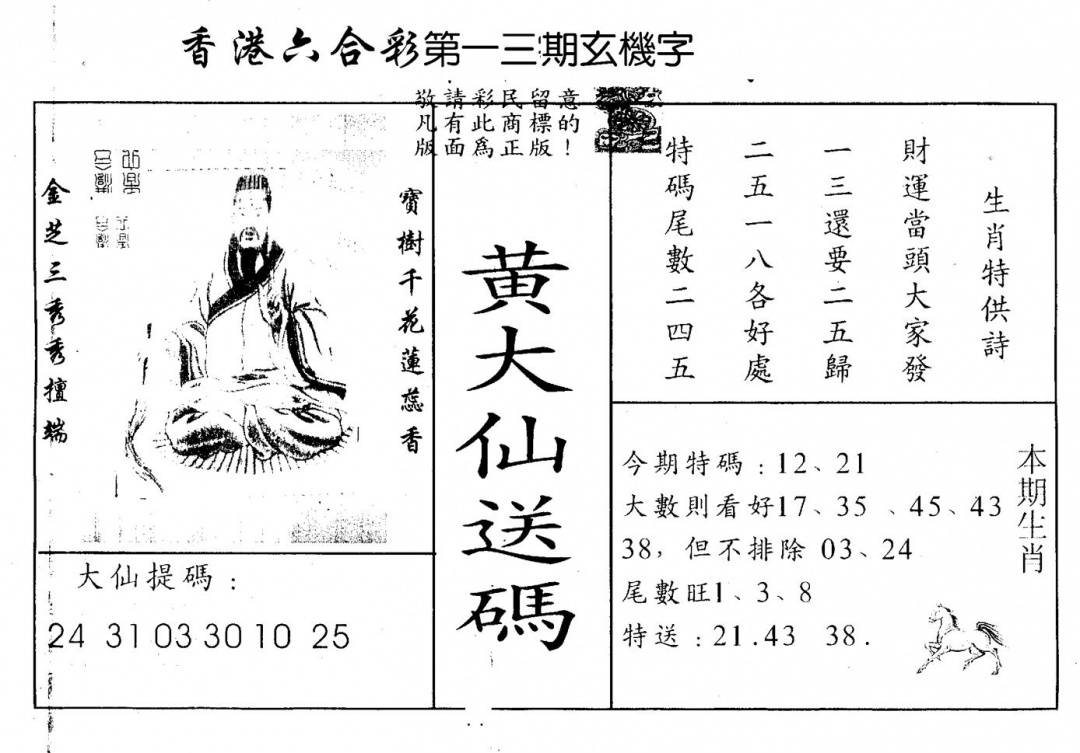 香港六合彩第一三期玄機字
敬請彩民留意
凡有此商標的
版面為正版！
生肖特供詩
財運當頭大家發
一三還要二五歸
二五一八各好處
特碼尾數二四五
寶樹千花蓮蕊香
金芝三秀秀擅端
黃大仙送碼
大仙提碼：
24 31 03 30 10 25
今期特碼：12、21
大數則看好17、35、45、43
38，但不排除 03、24
尾數旺1、3、8
特送：21.43 38.
本期生肖